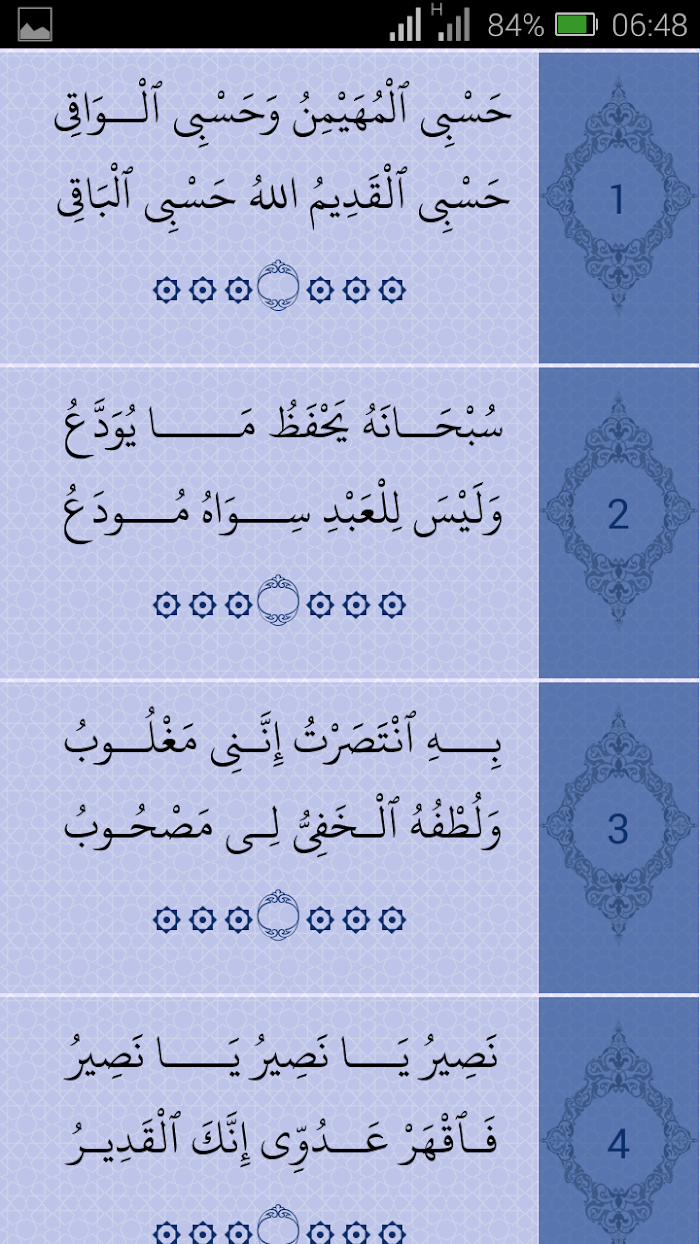 H 84% 06:48
حَسْبِى ٱلْمُهَيْمِنُ وَحَسْبِى ٱلْـــوَاقِى
حَسْبِى ٱلْقَدِيمُ اللهُ حَسْبِى ٱلْبَاقِى
1
سُبْحَـــانَهُ يَحْفَظُ مَـــــا يُوَدَّعُ
وَلَيْسَ لِلْعَبْدِ سِـــوَاهُ مُـــودَعُ
2
بِـــهِ ٱنْتَصَرْتُ إِنَّـــنِى مَغْلُـــوبُ
وَلُطْفُهُ ٱلْـخَفِىُّ لِـى مَصْحُـوبُ
3
نَصِيرُ يَـــا نَصِيرُ يَـــــا نَصِيرُ
فَـٱقْهَرْ عَـــدُوِّى إِنَّكَ ٱلْقَدِيـرُ
4